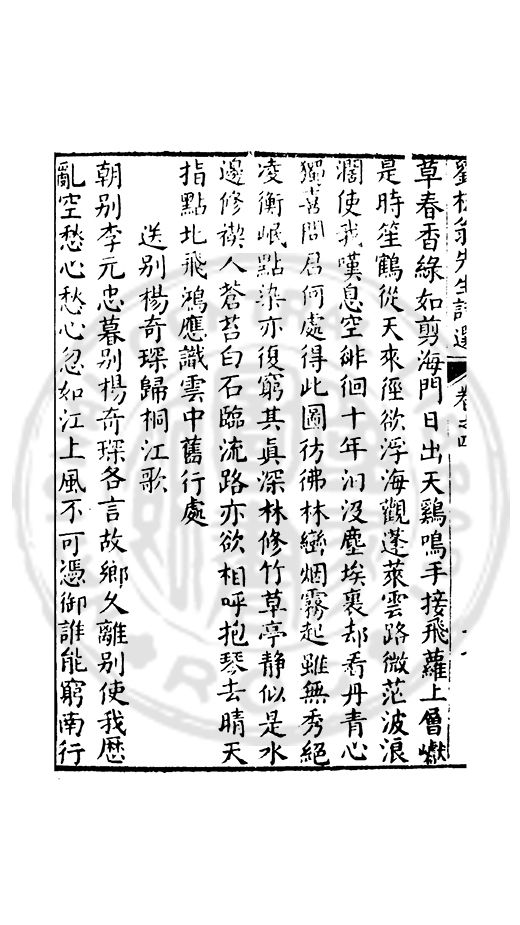 草春香綠如剪海門日出天鷄鳴手接飛蘿上層巘
是時笙鶴從天來徑欲浮海觀蓬萊雲路微茫波浪
濶使我嘆息空徘徊十年汩没塵埃裏却看丹青心
獨喜問君何處得此圖彷彿林巒烟霧起雖無秀絕
凌衡岷點染亦復窮其眞深林修竹草亭静似是水
邊修禊人蒼苔白石臨流路亦欲相呼抱琴去晴天
指點北飛鴻應識雲中舊行處
送别楊奇琛歸桐江歌
朝别李元忠暮别楊奇琛各言故鄉久離别使我歴
亂空愁心愁心忽如江上風不可憑御誰能窮南行